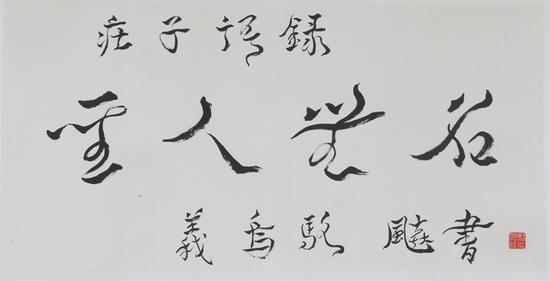 庄子語録
聖人無名
義烏駱飇書